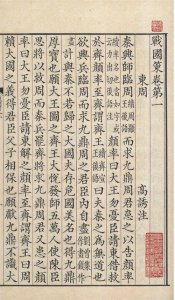 戰國策卷第一
東周
高誘注
秦興師臨周而求九鼎周君患之以告顏率
顏率曰大王勿憂臣請東借救
於齊顏率至齊謂齊王曰夫秦之為無道也
欲興兵臨周而求九鼎周之君臣內自盡
計與秦不若歸之大國夫存危國美名也得九鼎
厚寶也願大王圖之齊王大悅發師五萬人使陳臣
思將以救周而秦兵罷齊將求九鼎周君又患之顏
率曰大王勿憂臣請東解之顏率至齊謂齊王曰周
賴大國之義得君臣父子相保也願獻九鼎不識大